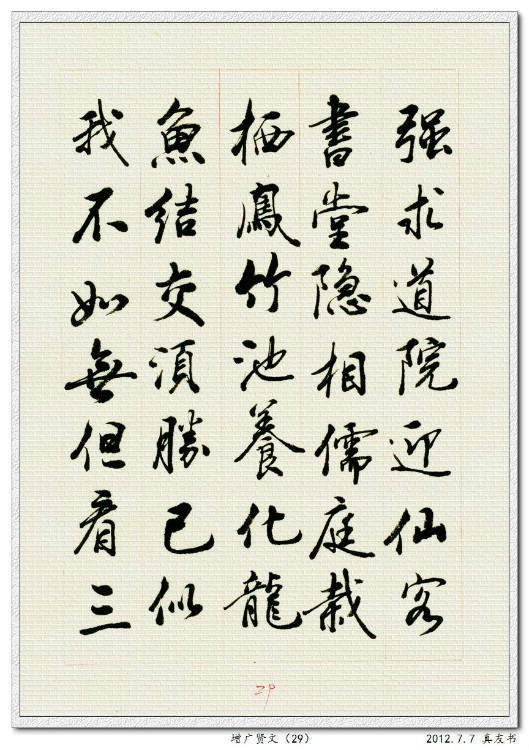 强求道院迎仙客
書堂隐相儒庭栽
栖鳳竹池養化龍
魚結交須勝己似
我不如無但看三
29
增广贤文（29）
2012.7.7 真友书